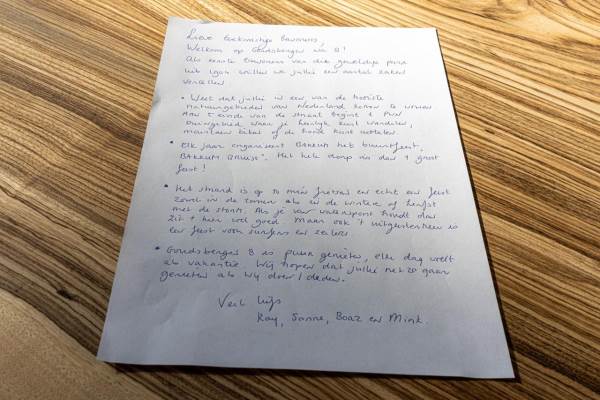 Lieve toekomstige bewoners,
Welkom op Goudsbergen nr 8!
Als eerste bewoners van dit geweldige
huis willen we jullie een aantal zaken
vertellen
• Weet dat jullie in een van de mooiste
natuurgebieden van Nederland komen te wonen
Aan 't einde van de straat begint 't PWN
duingebied waar je heerlijk kunt wandelen,
mountain biken of de hond kunt uitlaten.
• Elk jaar organiseert BAKKUM het buurtfeest,
"BAKKUM BRUIST". Het hele dorp is dan 1 groot
feest!
• Het strand is op 10 min fietsen en echt een feest
zowel in de zomer als in de winter of herfst
met de storm. Als je van watersport houdt dan
zit 't hier wel goed. Maar ook 't uitgestrekte is
een feest voor surfers en zeilers
• Goudsbergen 8 is puur genieten, elke dag voelt
als vakantie. Wij hopen dat jullie net zo gaan
genieten als wij dat deden.
Veel liefs
Ray, Sanne, Boaz en Mink.